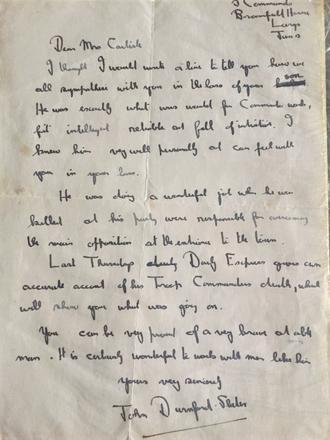 3 Commando
Broomfield House
Largs
Dear Mrs Carlisle
I thought I would write a line to tell you how we
all sympathise with you in the loss of your son.
He was exactly what was wanted for Commando work,
fit intelligent reliable and full of initiative. I
knew him very well personally and can feel with
you in your loss.
He was doing a wonderful job when he was
killed and his party were responsible for overcoming
the main opposition at the entrance to the town.
Last Thursdays Daily Express gives an
accurate account of his Troop Commanders death, which
will show you what was going on.
You can be very proud of a very brave and able
man. It is certainly wonderful to work with men like him
yours very sincerely
John Durnford-Slater